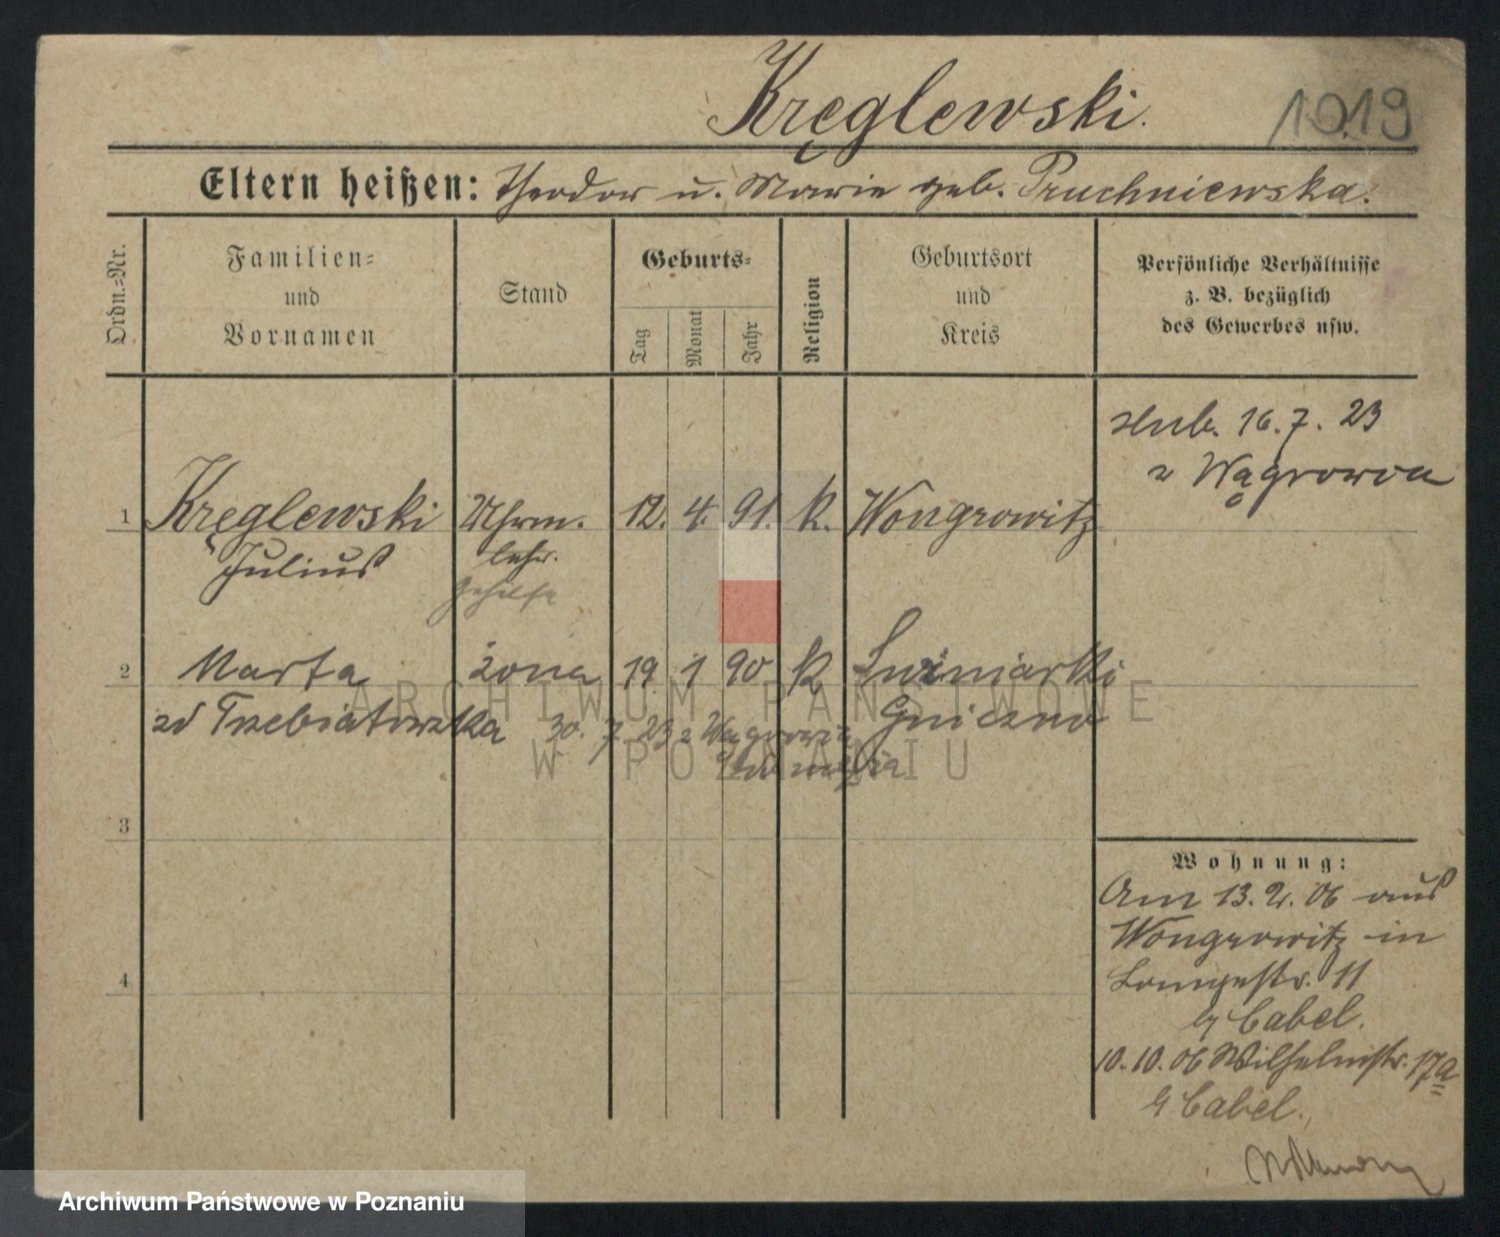 Kręglewski.
1019
Eltern heißen: Theodor u. Marie geb. Pruchniewska.
Ordn.-Nr.
Familien-
und
Vornamen
Stand
Geburts-
Tag
Monat
Jahr
Religion
Geburtsort
und
Kreis
Persönliche Verhältnisse
z. B. bezüglich
des Gewerbes usw.
ślub. 16.7.23
w Wągrowcu
1 Kręglewski Uhrm. 12. 4. 91. k. Wongrowitz
Julius lehr.
Gehilfe
2 Marta żona 19 1 90 k
zd Trzebiatowska 30. 7 23 z Wągrowca Gniezno
ARCHIWUM PAŃSTWOWE
W POZNANIU
3
4
Wohnung:
Am 13.2.06 aus
Wongrowitz in
Langestr. 11
b/ Cabel.
10.10.06 Wilhelmstr. 17a
b/ Cabel.
Archiwum Państwowe w Poznaniu